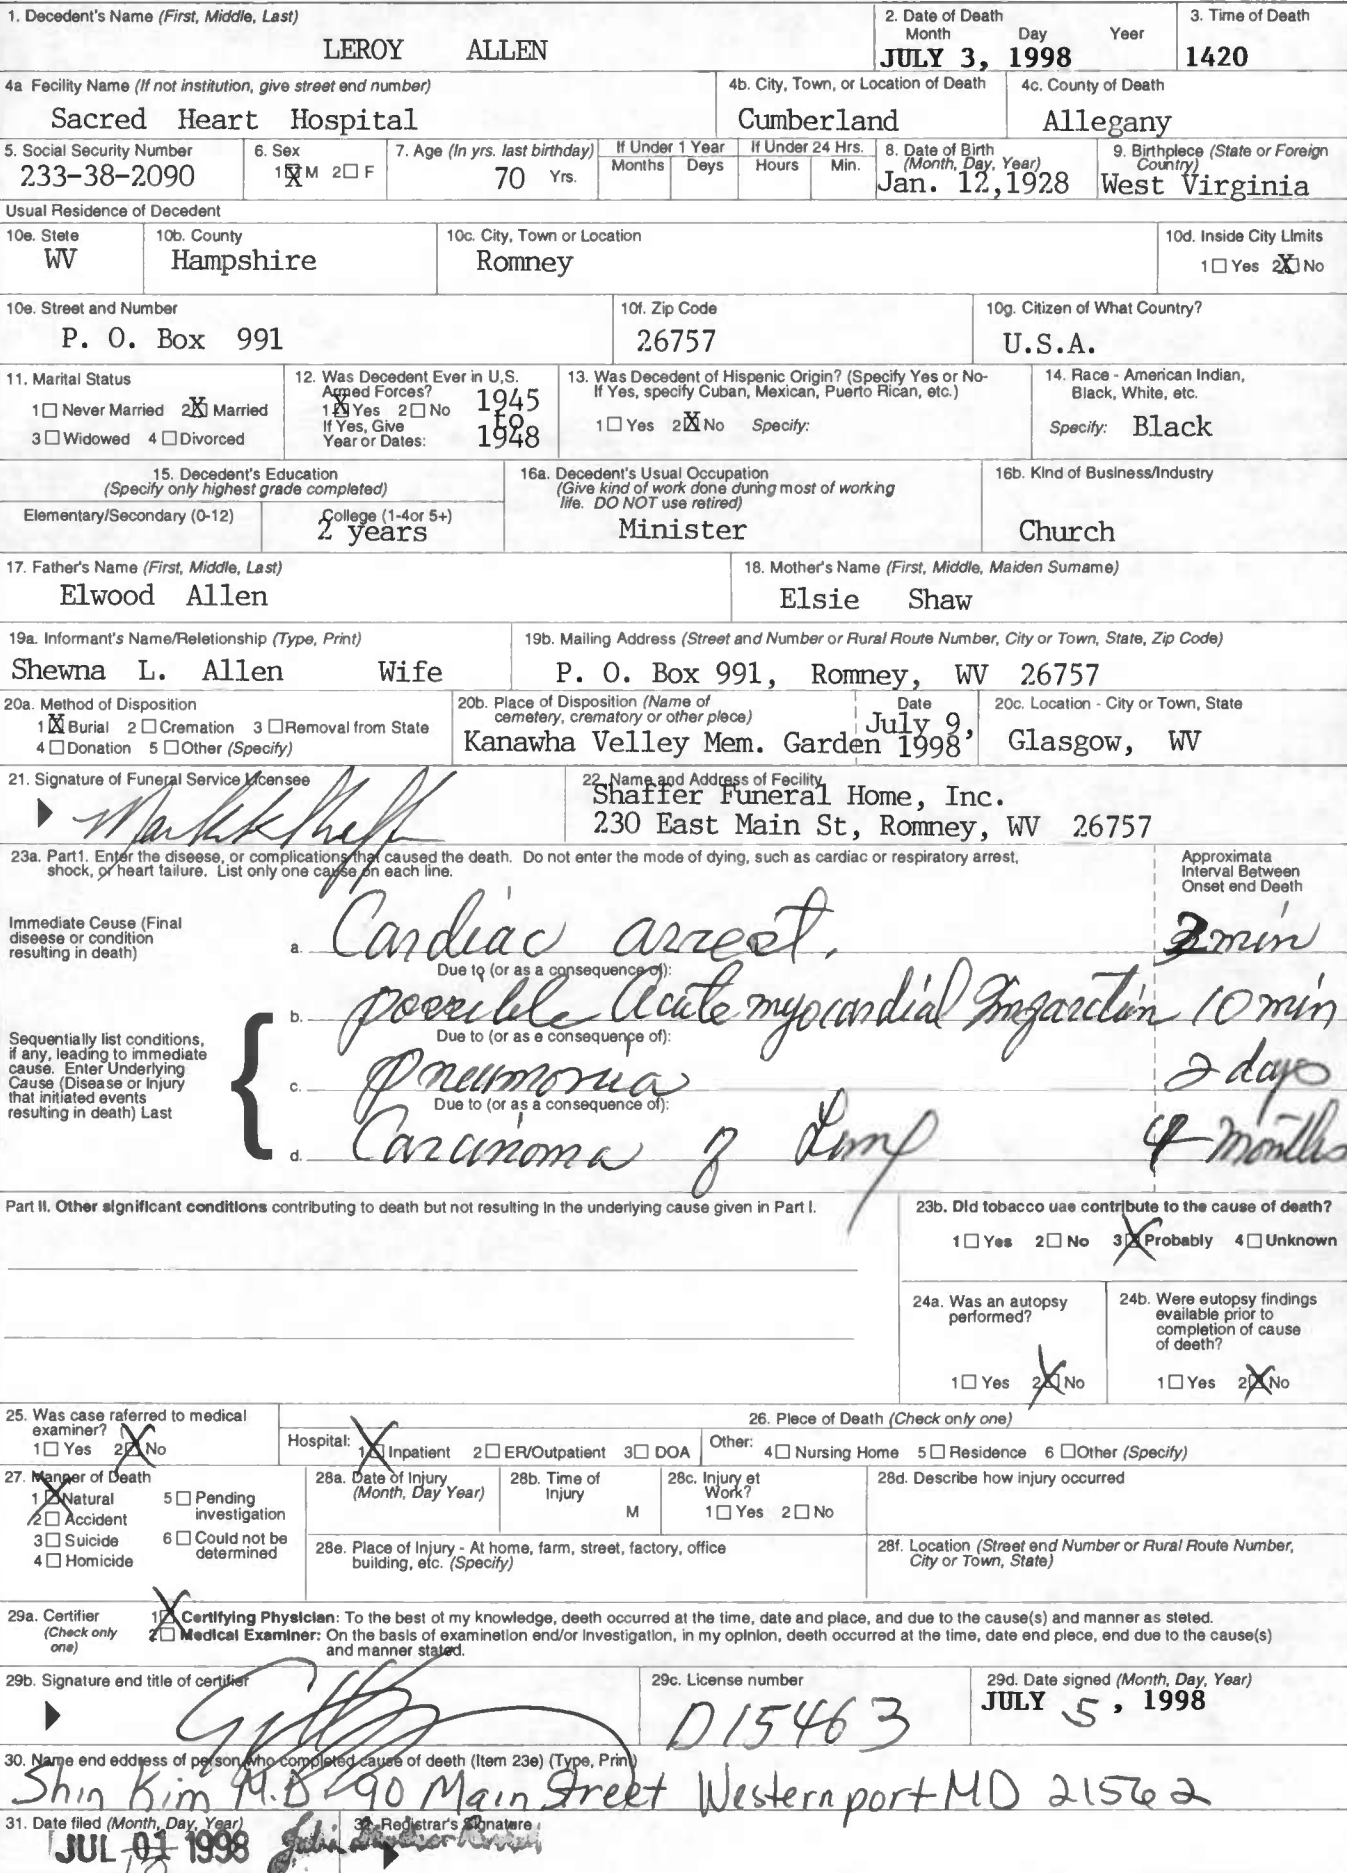 1. Decedent's Name (First, Middle, Last)
LEROY ALLEN
2. Date of Death
Month Day Yeer
JULY 3, 1998
3. Time of Death
1420
4a Fecility Name (If not institution, give street end number)
Sacred Heart Hospital
4b. City, Town, or Location of Death
Cumberland
4c. County of Death
Allegany
5. Social Security Number
233-38-2090
6. Sex
1 X M 2 ☐ F
7. Age (In yrs. last birthday)
70 Yrs.
If Under 1 Year
Months Deys
If Under 24 Hrs.
Hours Min.
8. Date of Birth
(Month, Day, Year)
Jan. 12,1928
9. Birthplece (State or Foreign
Country)
West Virginia
Usual Residence of Decedent
10e. Stete
WV
10b. County
Hampshire
10c. City, Town or Location
Romney
10d. Inside City Limits
1 ☐ Yes 2 X No
10e. Street and Number
P. O. Box 991
10f. Zip Code
26757
10g. Citizen of What Country?
U.S.A.
11. Marital Status
1 ☐ Never Married 2 X Married
3 ☐ Widowed 4 ☐ Divorced
12. Was Decedent Ever in U,S.
Armed Forces?
1 X Yes 2 ☐ No
If Yes, Give
Year or Dates:
1945
to
1948
13. Was Decedent of Hispenic Origin? (Specify Yes or No-
If Yes, specify Cuban, Mexican, Puerto Rican, etc.)
1 ☐ Yes 2 X No Specify:
14. Race - American Indian,
Black, White, etc.
Specify: Black
15. Decedent's Education
(Specify only highest grade completed)
Elementary/Secondary (0-12)
College (1-4or 5+)
2 years
16a. Decedent's Usual Occupation
(Give kind of work done during most of working
life. DO NOT use retired)
Minister
16b. Kind of Business/Industry
Church
17. Father's Name (First, Middle, Last)
Elwood Allen
18. Mother's Name (First, Middle, Maiden Surname)
Elsie Shaw
19a. Informant's Name/Reletionship (Type, Print)
Shewna L. Allen Wife
19b. Mailing Address (Street and Number or Rural Route Number, City or Town, State, Zip Code)
P. O. Box 991, Romney, WV 26757
20a. Method of Disposition
1 X Burial 2 ☐ Cremation 3 ☐ Removal from State
4 ☐ Donation 5 ☐ Other (Specify)
20b. Place of Disposition (Name of
cemetery, crematory or other plece)
Kanawha Velley Mem. Garden
Date
July 9,
1998
20c. Location - City or Town, State
Glasgow, WV
21. Signature of Funeral Service Licensee
22. Name and Address of Fecility
Shaffer Funeral Home, Inc.
230 East Main St, Romney, WV 26757
23a. Part1. Enter the disease, or complications that caused the death. Do not enter the mode of dying, such as cardiac or respiratory arrest,
shock, or heart failure. List only one cause on each line.
Approximata
Interval Between
Onset end Deeth
Immediate Ceuse (Final
diseese or condition
resulting in death)
a. Cardiac arrest. 3 min
Due to (or as a consequence of):
b. possible Acute myocardial Infarction 10 min
Due to (or as e consequence of):
Sequentially list conditions,
if any, leading to immediate
cause. Enter Underlying
Cause (Disease or Injury
that initiated events
resulting in death) Last
c. pneumonia 2 days
Due to (or as a consequence of):
d. Carcinoma of Lung 4 months
Part II. Other significant conditions contributing to death but not resulting in the underlying cause given in Part I.
23b. Did tobacco uae contribute to the cause of death?
1 ☐ Yes 2 ☐ No 3 X Probably 4 ☐ Unknown
24a. Was an autopsy
performed?
1 ☐ Yes 2 X No
24b. Were eutopsy findings
evailable prior to
completion of cause
of deeth?
1 ☐ Yes 2 X No
25. Was case raferred to medical
examiner?
1 ☐ Yes 2 X No
26. Plece of Death (Check only one)
Hospital: 1 X Inpatient 2 ☐ ER/Outpatient 3 ☐ DOA Other: 4 ☐ Nursing Home 5 ☐ Residence 6 ☐ Other (Specify)
27. Manner of Death
1 X Natural 5 ☐ Pending
investigation
2 ☐ Accident
3 ☐ Suicide 6 ☐ Could not be
determined
4 ☐ Homicide
28a. Date of Injury
(Month, Day Year)
28b. Time of
Injury
M
28c. Injury et
Work?
1 ☐ Yes 2 ☐ No
28d. Describe how injury occurred
28e. Place of Injury - At home, farm, street, factory, office
building, etc. (Specify)
28f. Location (Street end Number or Rural Route Number,
City or Town, State)
29a. Certifier
(Check only
one)
1 X Certifying Physician: To the best of my knowledge, deeth occurred at the time, date and place, and due to the cause(s) and manner as steted.
2 ☐ Medical Examiner: On the basis of examinetion end/or Investigation, in my opinion, deeth occurred at the time, date end plece, end due to the cause(s)
and manner stated.
29b. Signature end title of certifier
29c. License number
D15463
29d. Date signed (Month, Day, Year)
JULY 5, 1998
30. Name end eddress of person who completed cause of death (Item 23e) (Type, Print)
Shin Kim M.D 90 Main Street Westernport MD 21562
31. Date filed (Month, Day, Year)
JUL 01 1998
32. Registrar's Signature